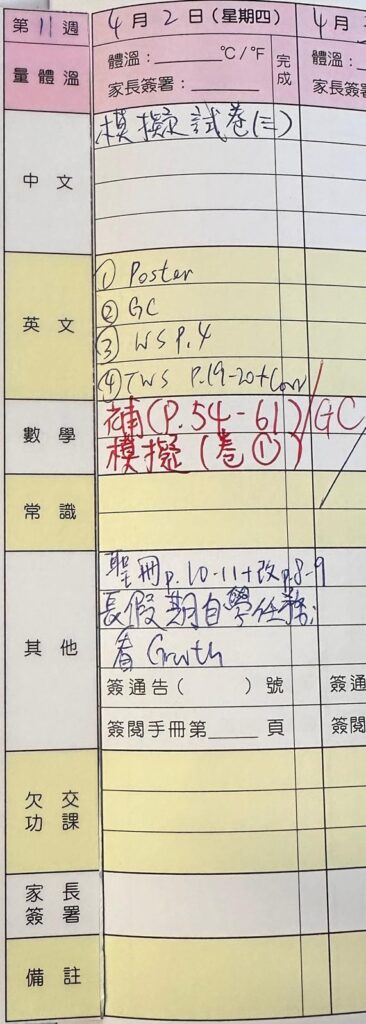 第11週 4月2日(星期四) 4月
量體溫 體溫:______°C/°F 完成 體溫:
家長簽署:______ 家長簽
中文 模擬試卷(三)
英文 ① Poster
② GC
③ WS P.4
④ TWS P.19-20+Corr
數學 補(P.54-61) GC
模擬(卷①)
常識
其他 聖冊p.10-11+改p.8-9
長假期自學任務:
看Growth
簽通告( )號 簽通
簽閱手冊第____頁 簽閱
欠交功課
家長簽署
備註